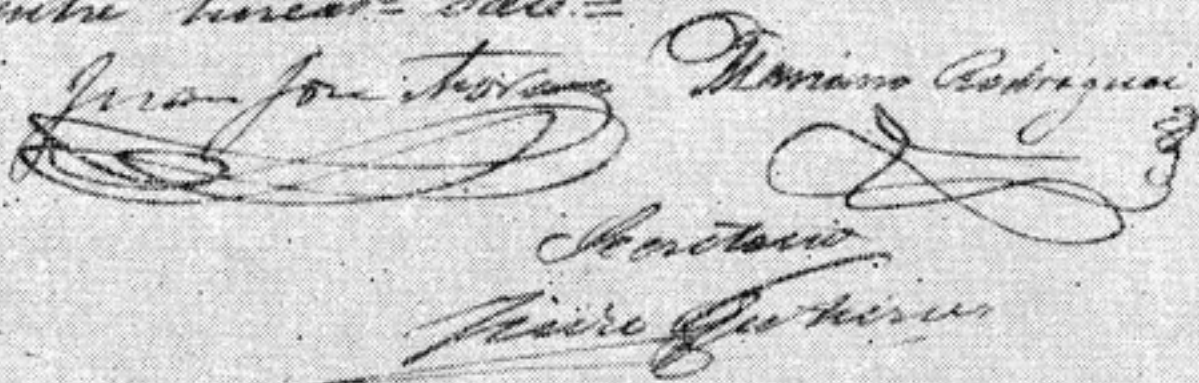 entre lineas = vale =
Juan José Moreno Mariano Rodriguez
Secretario
Gutierrez